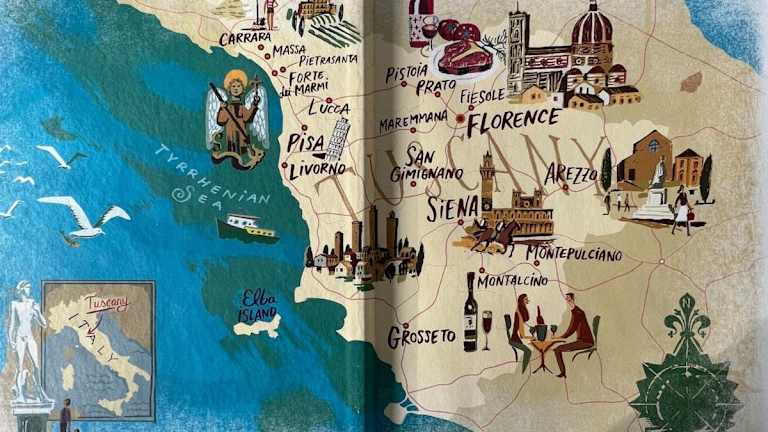 CARRARA
MASSA
PIETRASANTA
FORTE
dei MARMI
LUCCA
PISA
LIVORNO
TYRRHENIAN
SEA
PISTOIA
PRATO
FIESOLE
MAREMMANA
FLORENCE
TUSCANY
SAN
GIMIGNANO
AREZZO
SIENA
MONTEPULCIANO
MONTALCINO
Elba
ISLAND
GROSSETO
Tuscany
ITALY